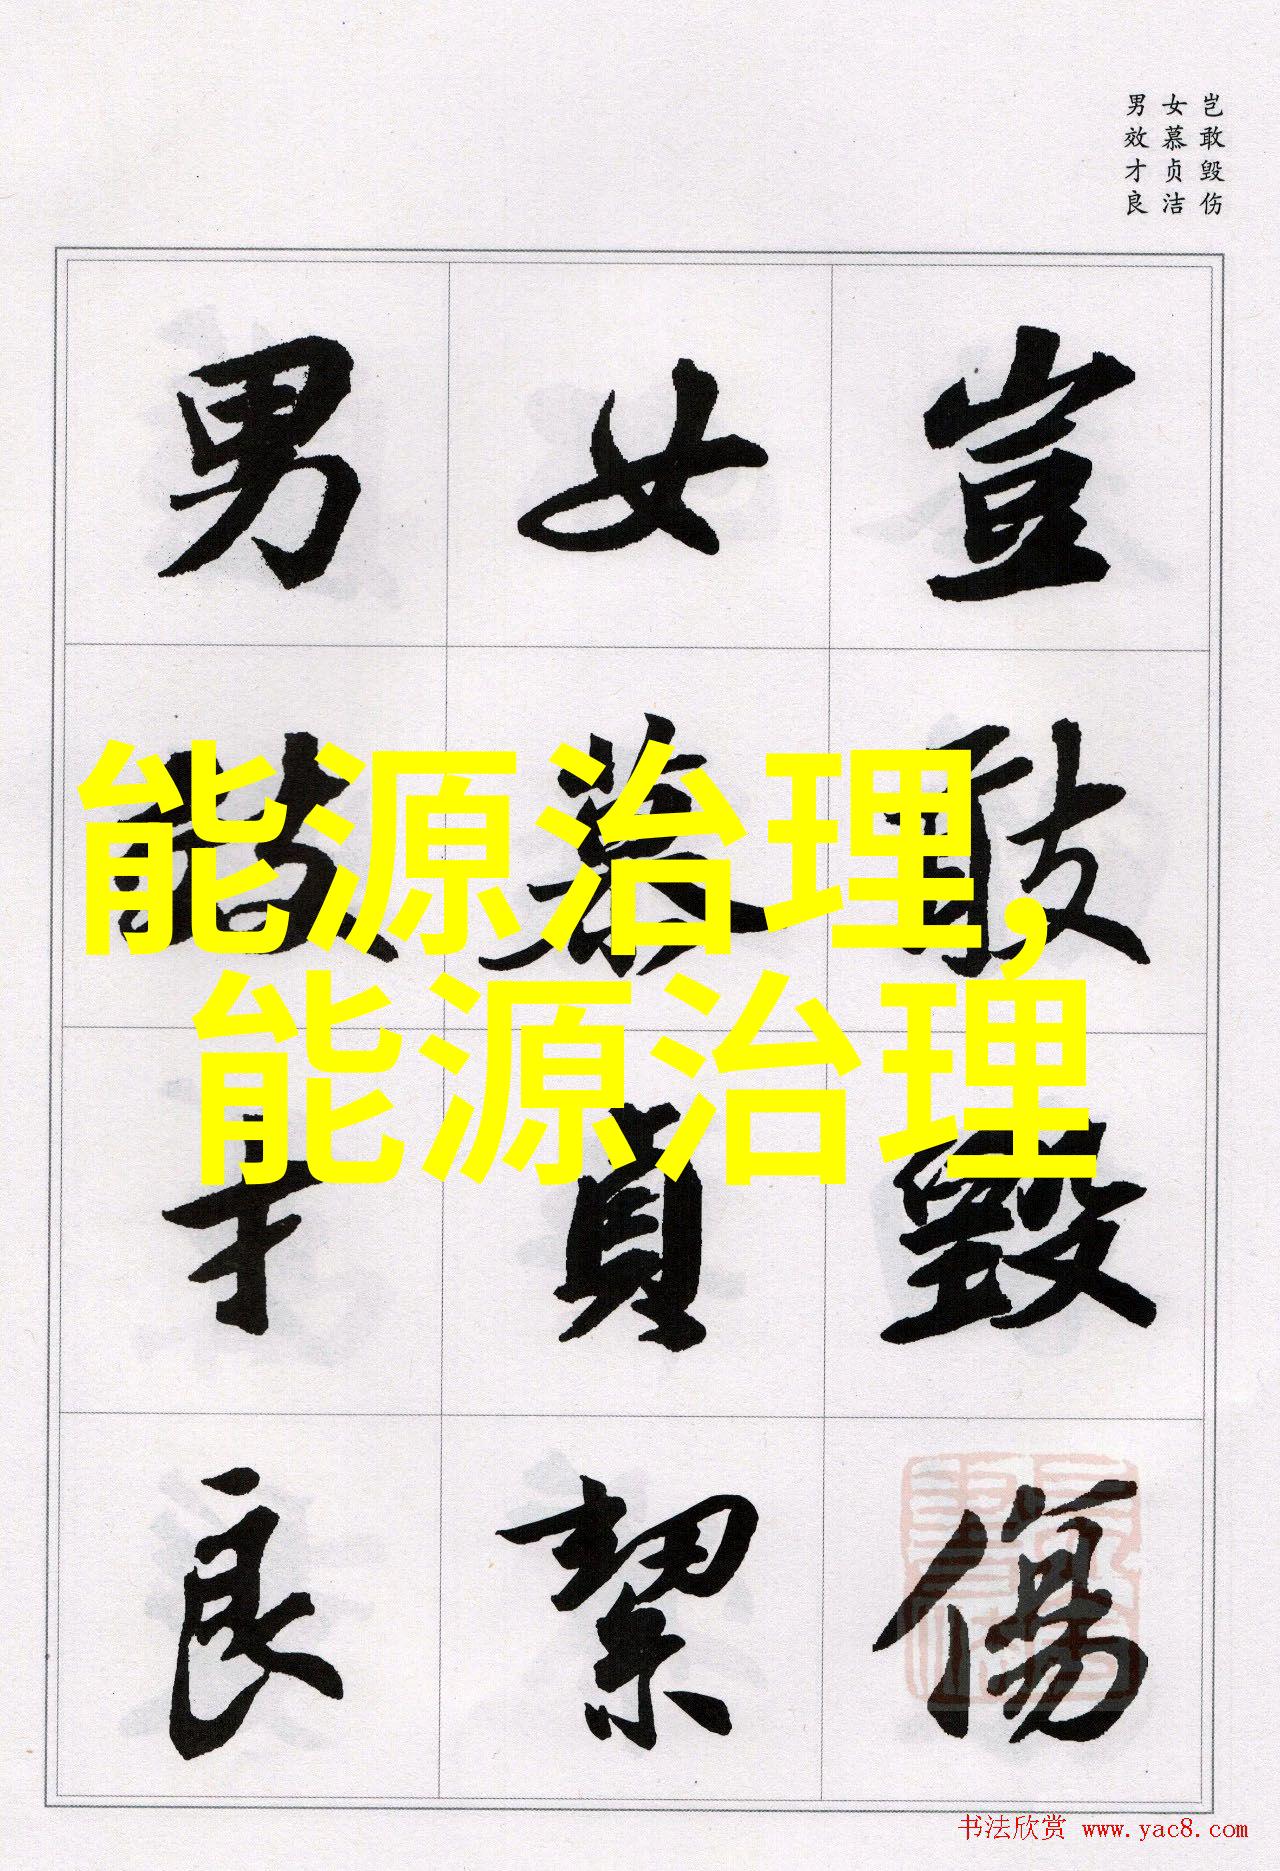 岂敢毁伤
女慕贞洁
男效才良
豈敢毀傷
女慕貞絜
男效才良
能源治理,
能源治理
书法欣赏 www.yac8.com